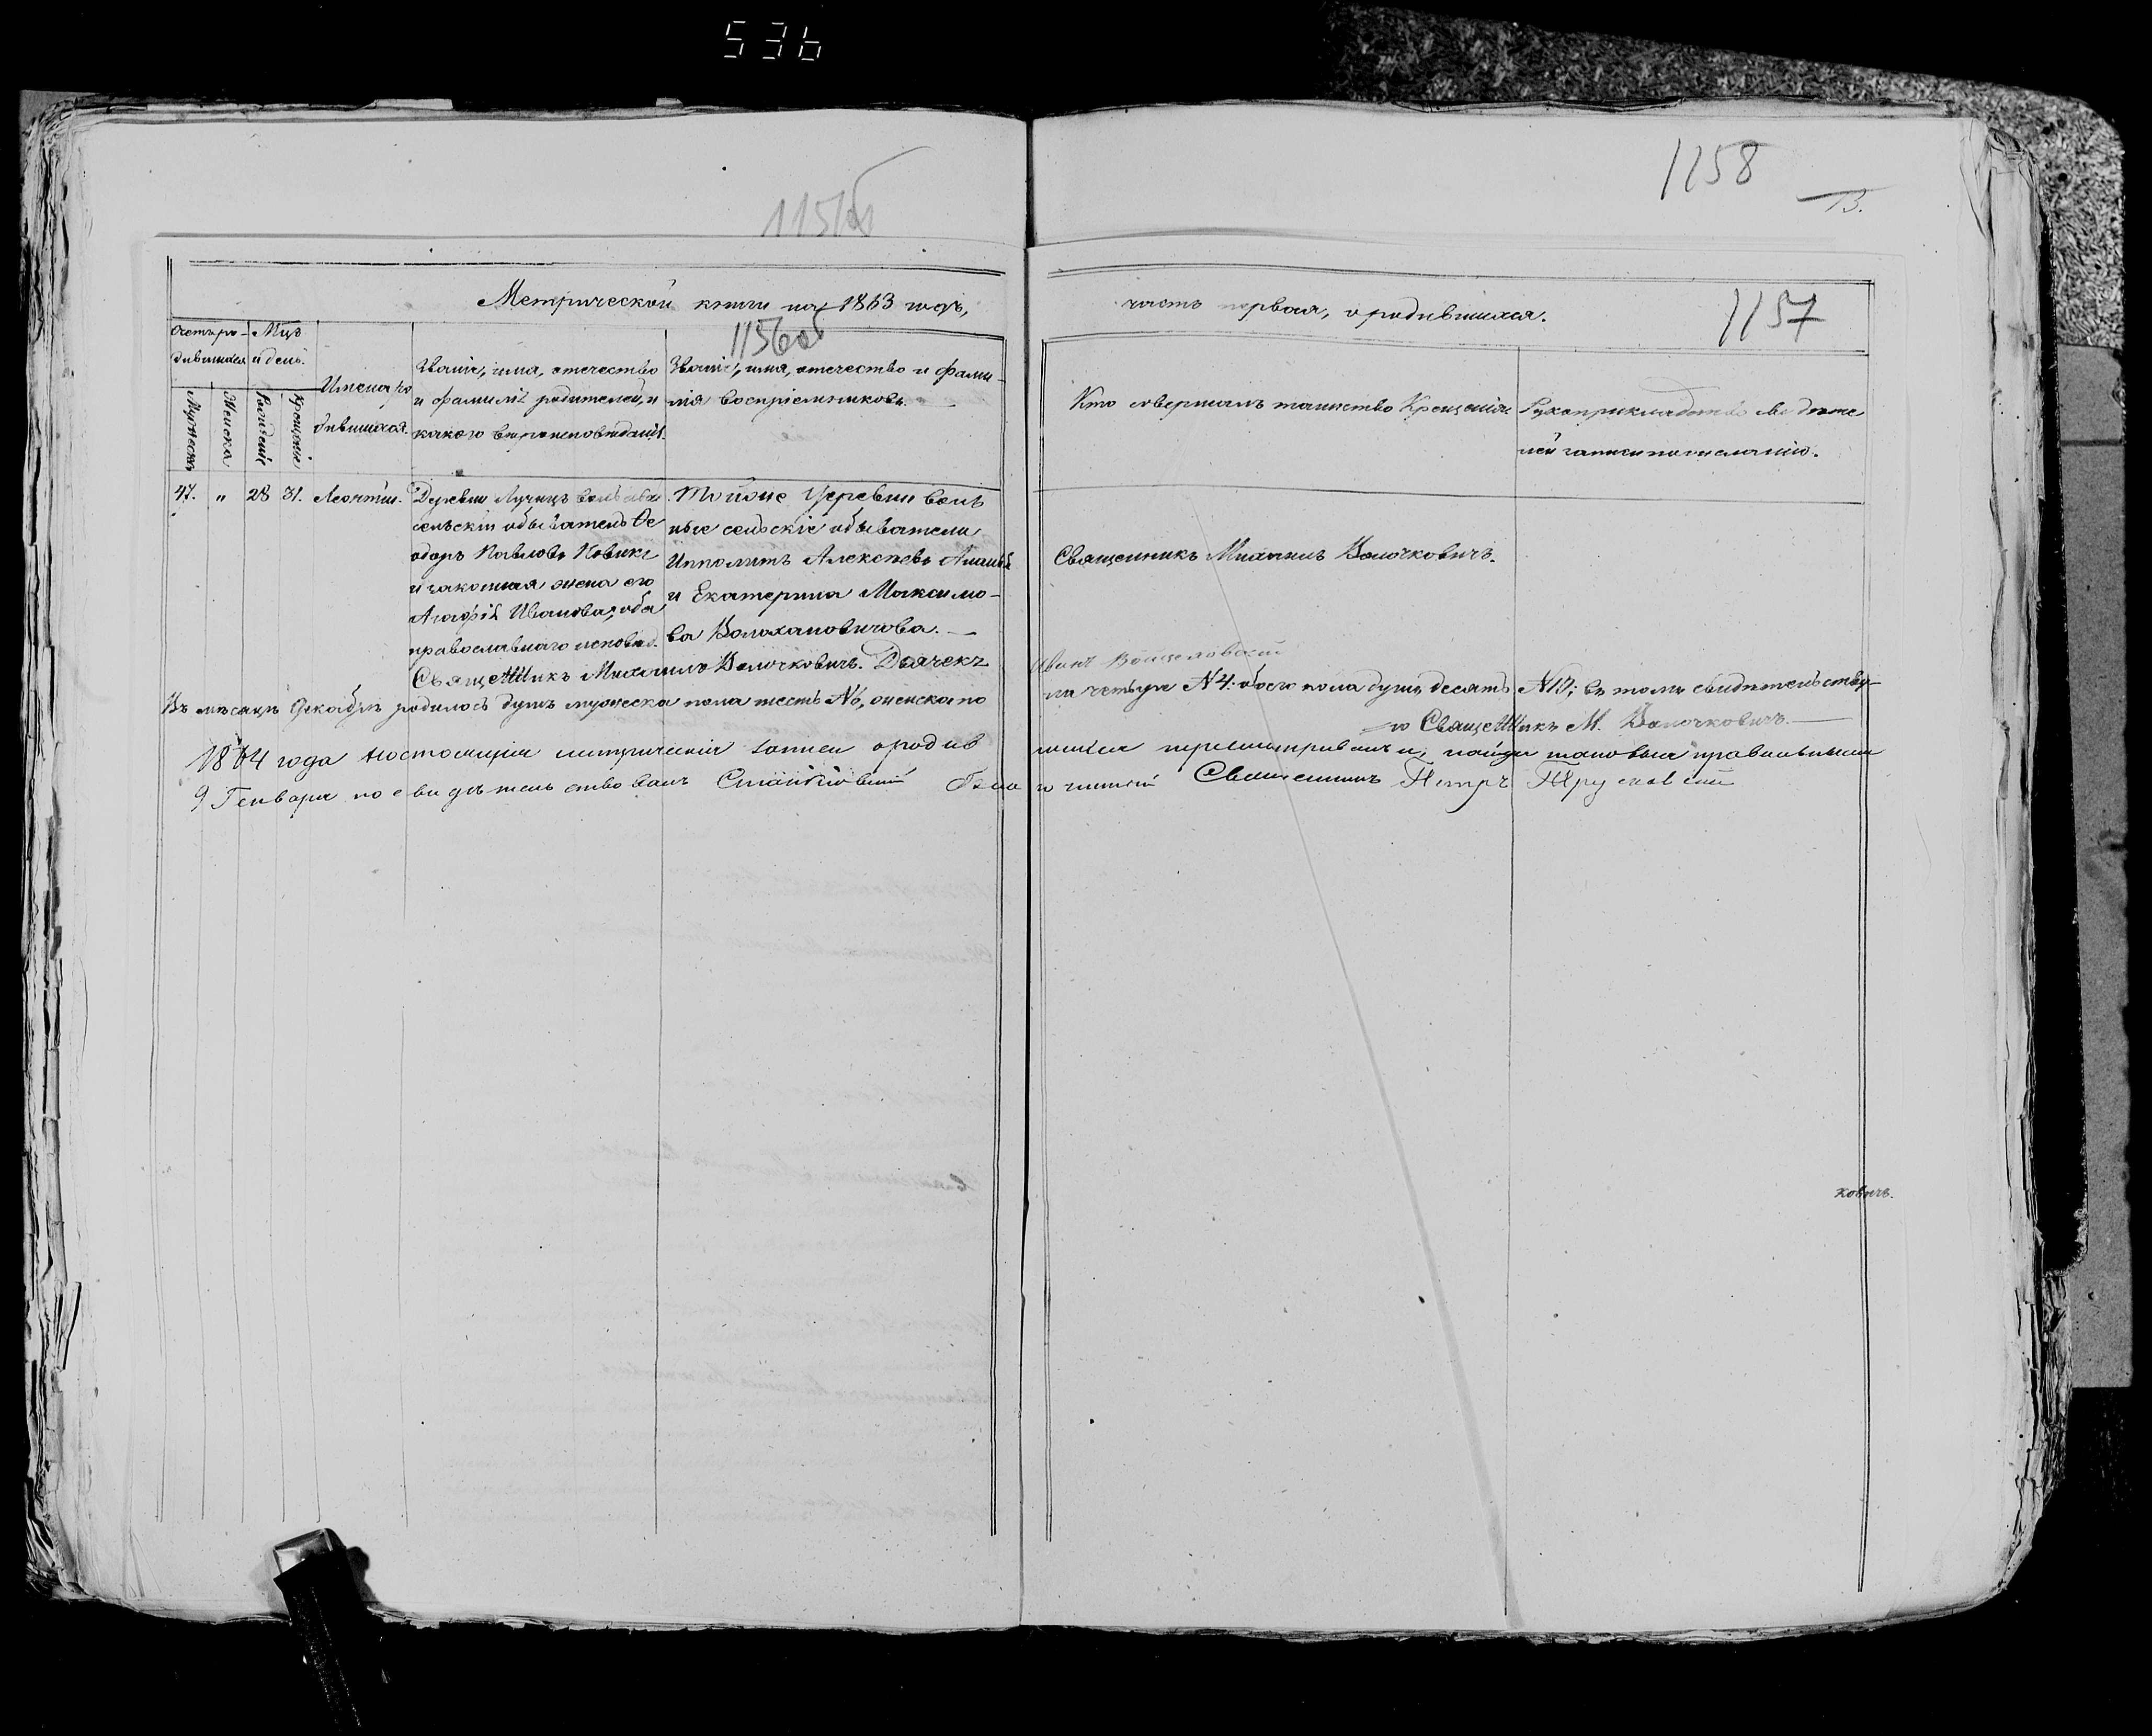 536
1158
13.
Метрической книги на 1863 годъ,
часть первая, о родившихся.
1156об
1157
Счетъ ро-
дившихся
Мужеска
Женска
Мцъ
и день.
Рожденіе
Крещеніе
Имена ро
дившихся.
Званіе, имя, отечество
и фамилія родителей, и
какого вѣроисповѣданія.
Званіе, имя, отечество и фами-
лія воспріемниковъ.
Кто совершалъ таинство Крещенія
Рукоприкладство свидѣте
лей записи по желанію.
47. " 28 31. Леонтій.
Деревни Лучицъ вольный
сельскій обыватель Ѳе
одоръ Павловъ Новикъ
и законная жена его
Агафія Иванова, оба
православнаго исповѣд.
Той же деревни воль
ные сельскіе обыватели
Ипполитъ Алексѣевъ
и Екатерина Максимо-
ва Волохановичова.
Священникъ Михаилъ Волочковичъ.
Священникъ Михаилъ Волочковичъ. Дьячекъ
Иванъ Войцеховскій
Въ мѣсяцѣ Декабрѣ родилось душъ мужеска пола шесть №6, женска по
ла четыре №4: обоего пола душъ десять №10; въ томъ свидѣтельству-
ю Священникъ М. Волочковичъ.
1864 года настоящія метрическія записи о родив
шихся пересматривалъ и, найдя таковыя правильными
9 Генваря посвидѣтельствовалъ
Благочинный Священникъ Петръ Трусковскій
ковичъ.